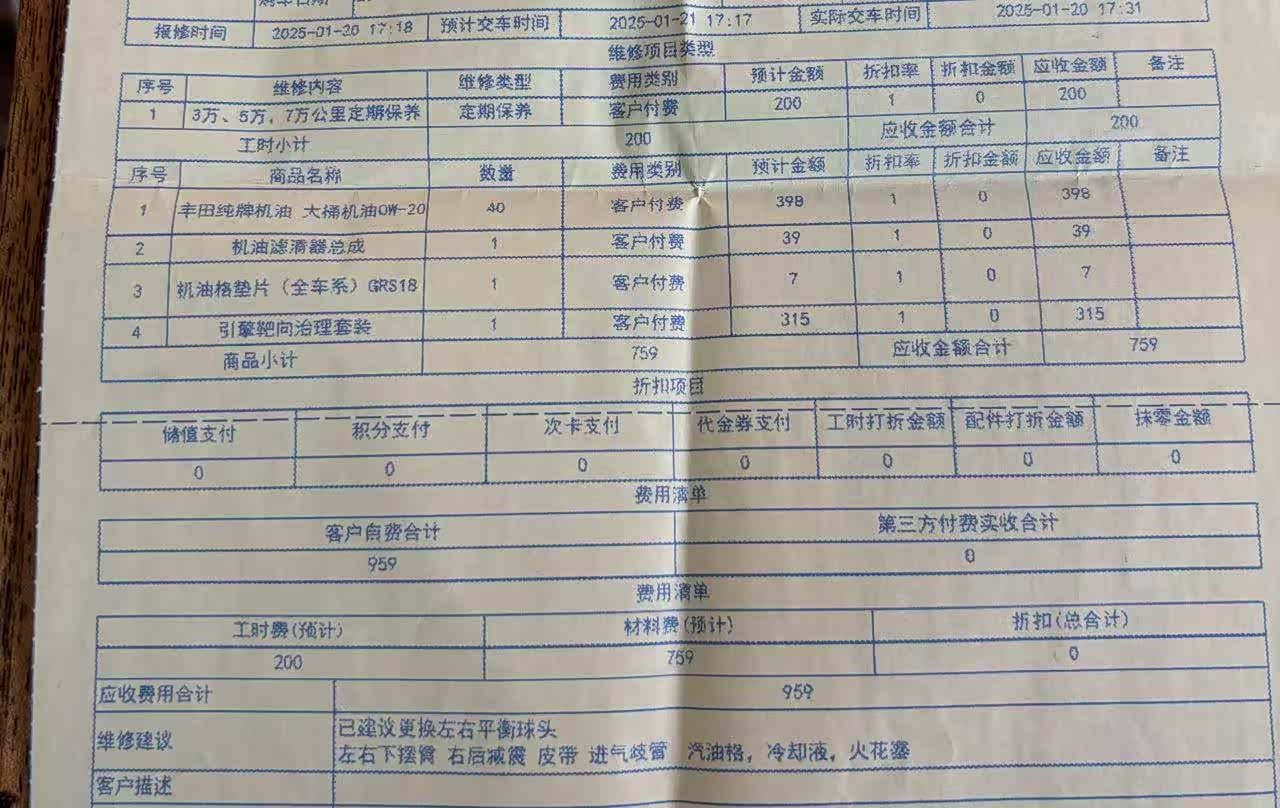 购车日期
报修时间 2025-01-20 17:18 预计交车时间 2025-01-21 17:17 实际交车时间 2025-01-20 17:31
维修项目类型
序号 维修内容 维修类型 费用类别 预计金额 折扣率 折扣金额 应收金额 备注
1 3万、5万，7万公里定期保养 定期保养 客户付费 200 1 0 200
工时小计 200 应收金额合计 200
序号 商品名称 数量 费用类别 预计金额 折扣率 折扣金额 应收金额 备注
1 丰田纯牌机油 大桶机油0W-20 40 客户付费 398 1 0 398
2 机油滤清器总成 1 客户付费 39 1 0 39
3 机油格垫片（全车系）GRS18 1 客户付费 7 1 0 7
4 引擎靶向治理套装 1 客户付费 315 1 0 315
商品小计 759 应收金额合计 759
折扣项目
储值支付 积分支付 次卡支付 代金券支付 工时打折金额 配件打折金额 抹零金额
0 0 0 0 0 0 0
费用清单
客户自费合计 第三方付费实收合计
959 0
费用清单
工时费(预计) 材料费(预计) 折扣(总合计)
200 759 0
应收费用合计 959
维修建议 已建议更换左右平衡球头
左右下摆臂 右后减震 皮带 进气歧管 汽油格，冷却液，火花塞
客户描述